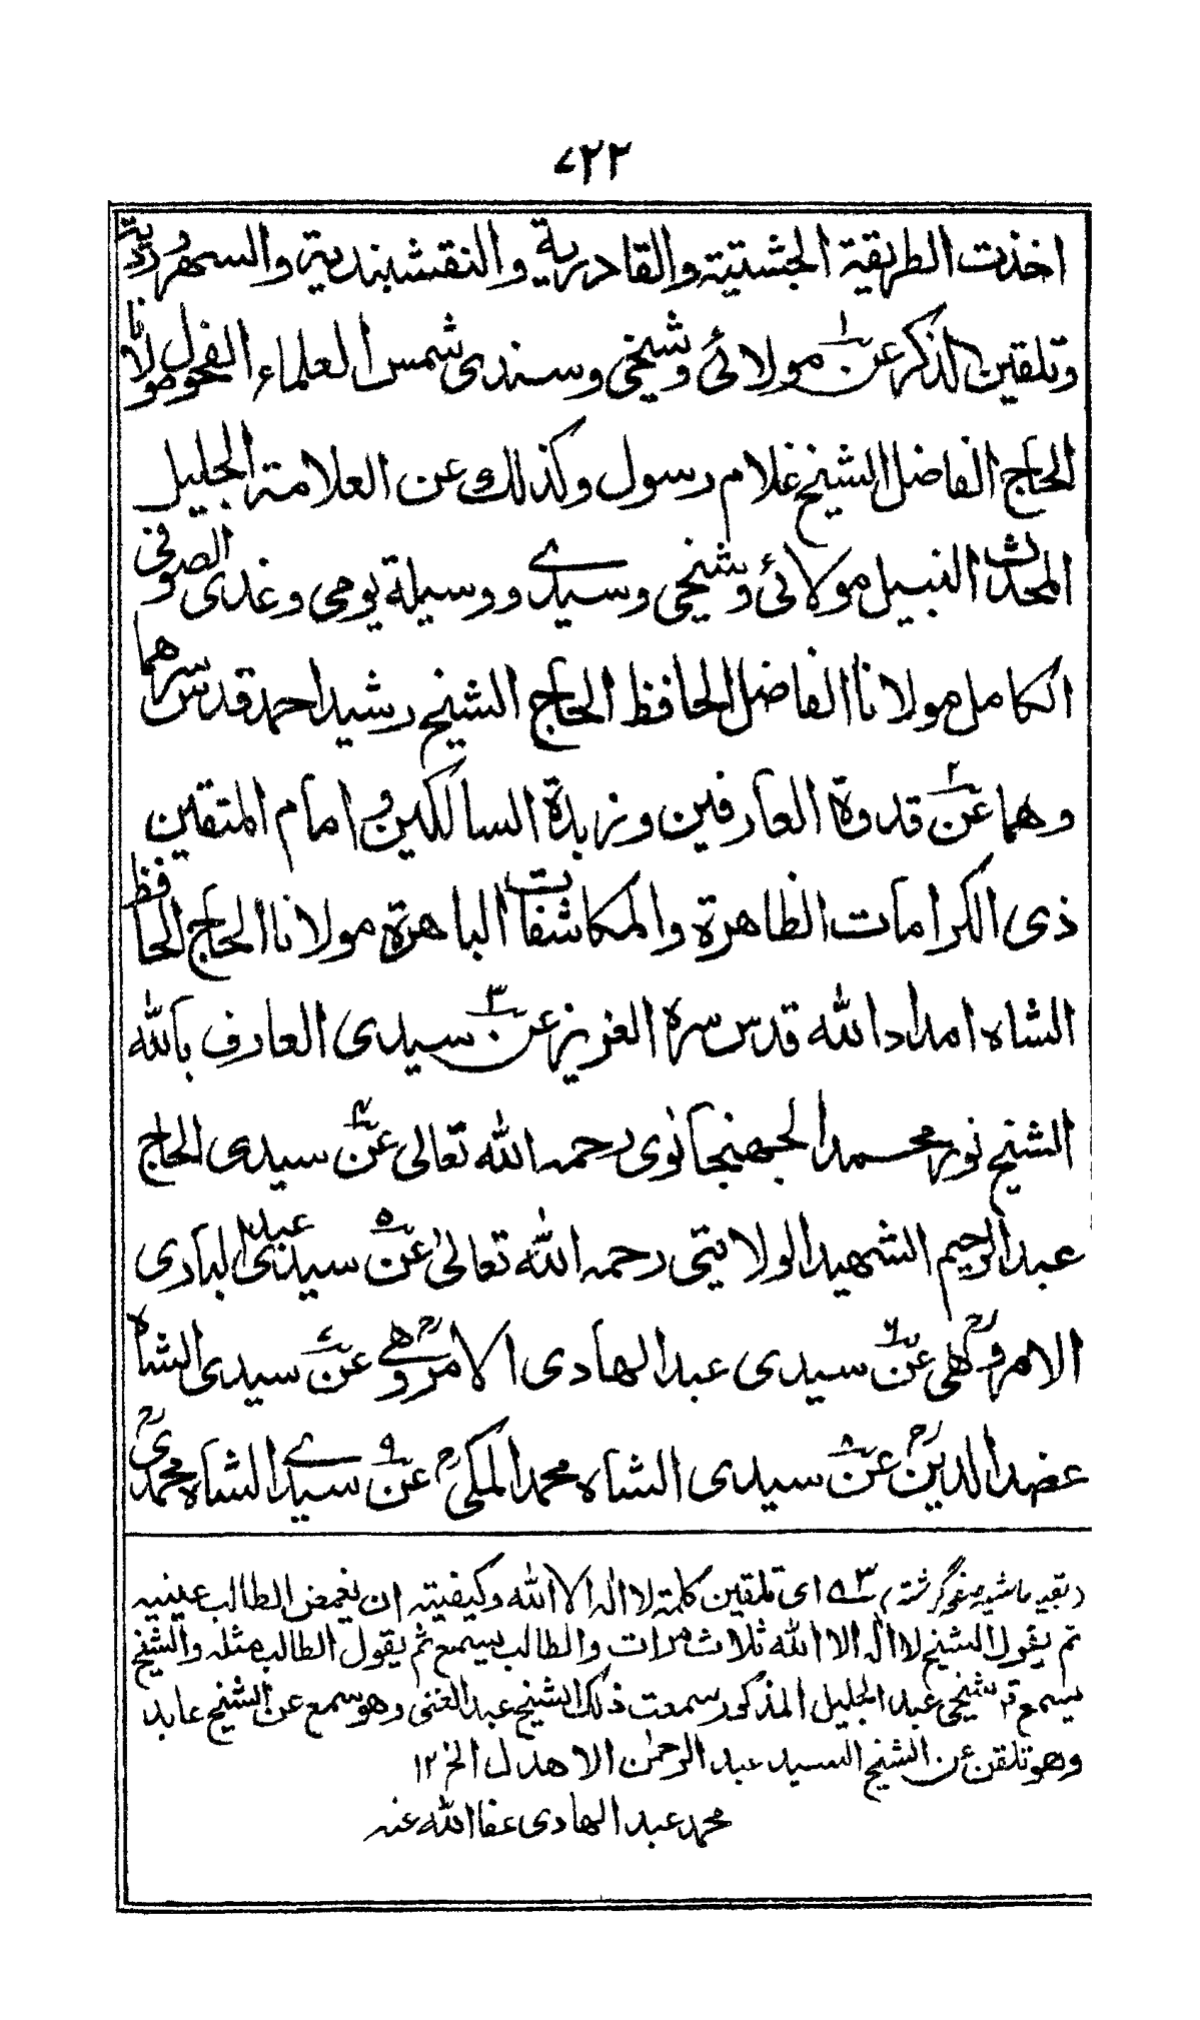 ٧٢٢
اخذت الطريقة الجشتية والقادرية والنقشبندية والسهروردية
وتلقين الذكر عن ١ مولائي وشيخي وسندي شمس العلماء الفحول مولانا
الحاج الفاضل الشيخ غلام رسول وكذلك عن العلامة الجليل
المحدث النبيل مولائي وشيخي وسيدے ووسيلة يومي وغدي الصوفي
الكامل مولانا الفاضل الحافظ الحاج الشيخ رشيد احمد قدس سرهما
وهما عن ٢ قدوة العارفين وزبدة السالكين وامام المتقين
ذي الكرامات الظاهرة والمكاشفات الباهرة مولانا الحاج الحافظ
الشاه امداد الله قدس سره العزيز عن ٣ سيدي العارف بالله
الشيخ نور محمد الجهنجانوي رحمه الله تعالى عن ٤ سيدي الحاج
عبد الرحيم الشهيد الولايتي رحمه الله تعالى عن ٥ سيدي عبد الباري
الامروهي رح عن ٦ سيدي عبد الهادي الامروهے رح عن ٧ سيدي الشاه
عضد الدين رح عن ٨ سيدي الشاه محمد المكي رح عن ٩ سيدے الشاه محمدي رح
(بقيه حاشيه صفحه گزشته) ٣ه اي تلقين كلمة لا اله الا الله وكيفيته ان يغمض الطالب عينيه
ثم يقول الشيخ لا اله الا الله ثلاث مرات والطالب يسمع ثم يقول الطالب مثله والشيخ
يسمع شيخي عبد الجليل المذكور سمعت ذلك الشيخ عبد الغني وهو سمع عن الشيخ عابد
وهو تلقن عن الشيخ السيد عبد الرحمن الاهدل الخ ١٢
محمد عبد الهادي عفا الله عنه